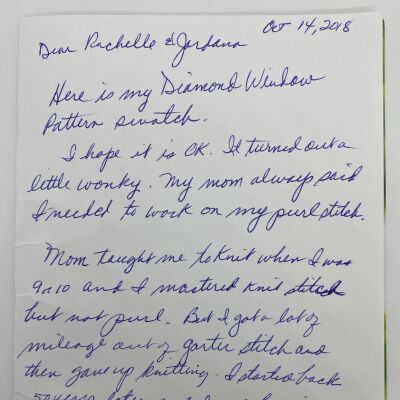 Oct 14, 2018
Dear Rachelle & Jordana
Here is my Diamond Window
Pattern swatch.
I hope it is OK. It turned out a
little wonky. My mom always said
I needed to work on my purl stitch.
Mom taught me to knit when I was
9 or 10 and I mastered knit stitch
but not purl. But I got a lot of
mileage out of garter stitch and
then gave up knitting. I started back
50 years later